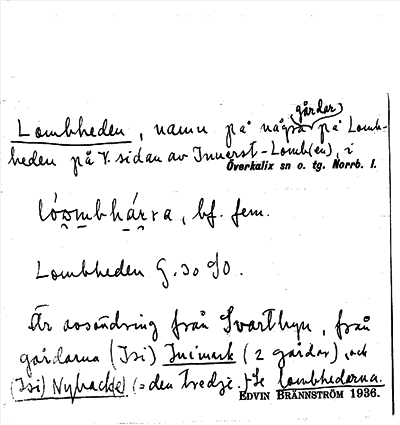 Lombheden, namn på några gårdar på Lomb-
heden på V. sidan av Innerst-Lomb(en), i
Överkalix sn o. tg. Norrb. l.
bf. fem.
Lombheden G. 30 SO.
Är avsöndring från Svartbyn, från
gårdarna (Isi) Inimark (2 gårdar), och
(Isi) Nybacke (= den tredje). Se lombhedarna.
EDVIN BRÄNNSTRÖM 1936.